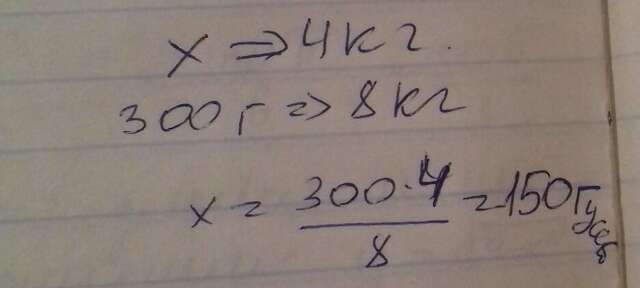 x => 4кг.
300г => 8кг
x = 300·4 = 150г
8